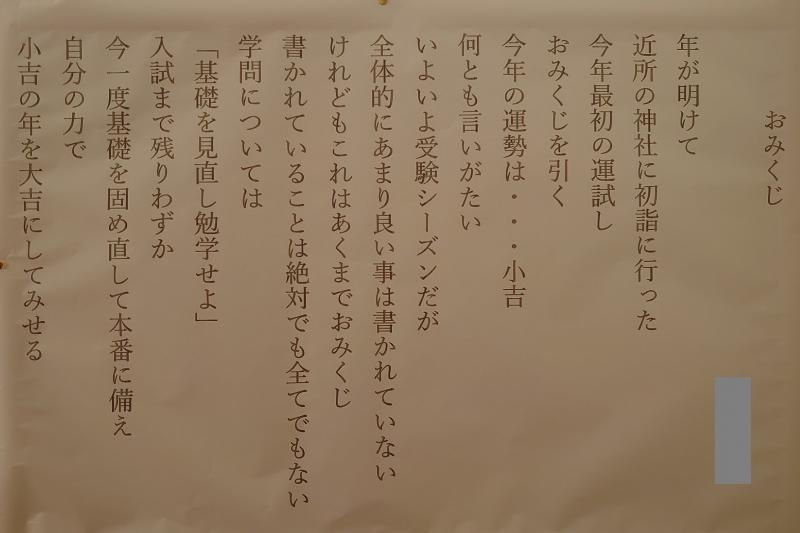 おみくじ
年が明けて
近所の神社に初詣に行った
今年最初の運試し
おみくじを引く
今年の運勢は・・・小吉
何とも言いがたい
いよいよ受験シーズンだが
全体的にあまり良い事は書かれていない
けれどもこれはあくまでおみくじ
書かれていることは絶対でも全てでもない
学問については
「基礎を見直し勉学せよ」
入試まで残りわずか
今一度基礎を固め直して本番に備え
自分の力で
小吉の年を大吉にしてみせる